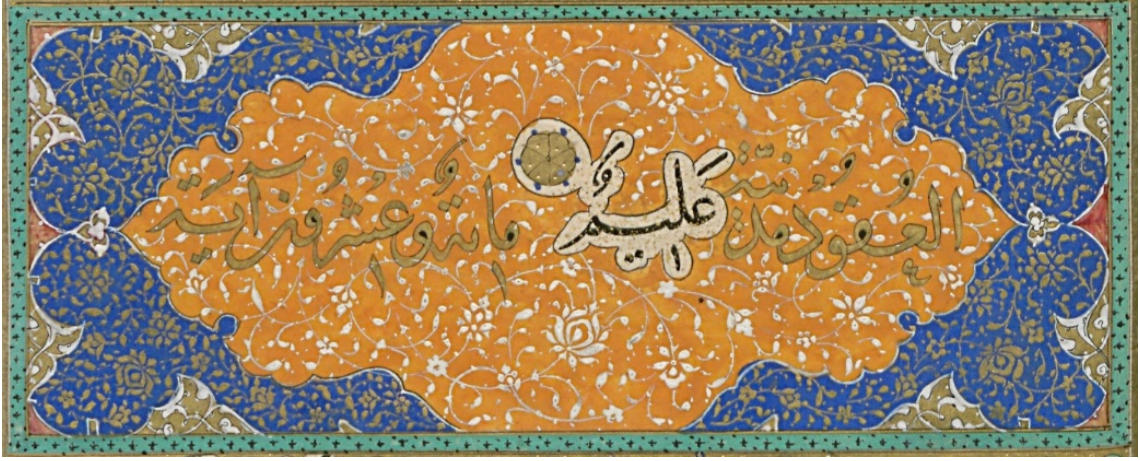 العقود مدنية عليم مائة وعشرون آية